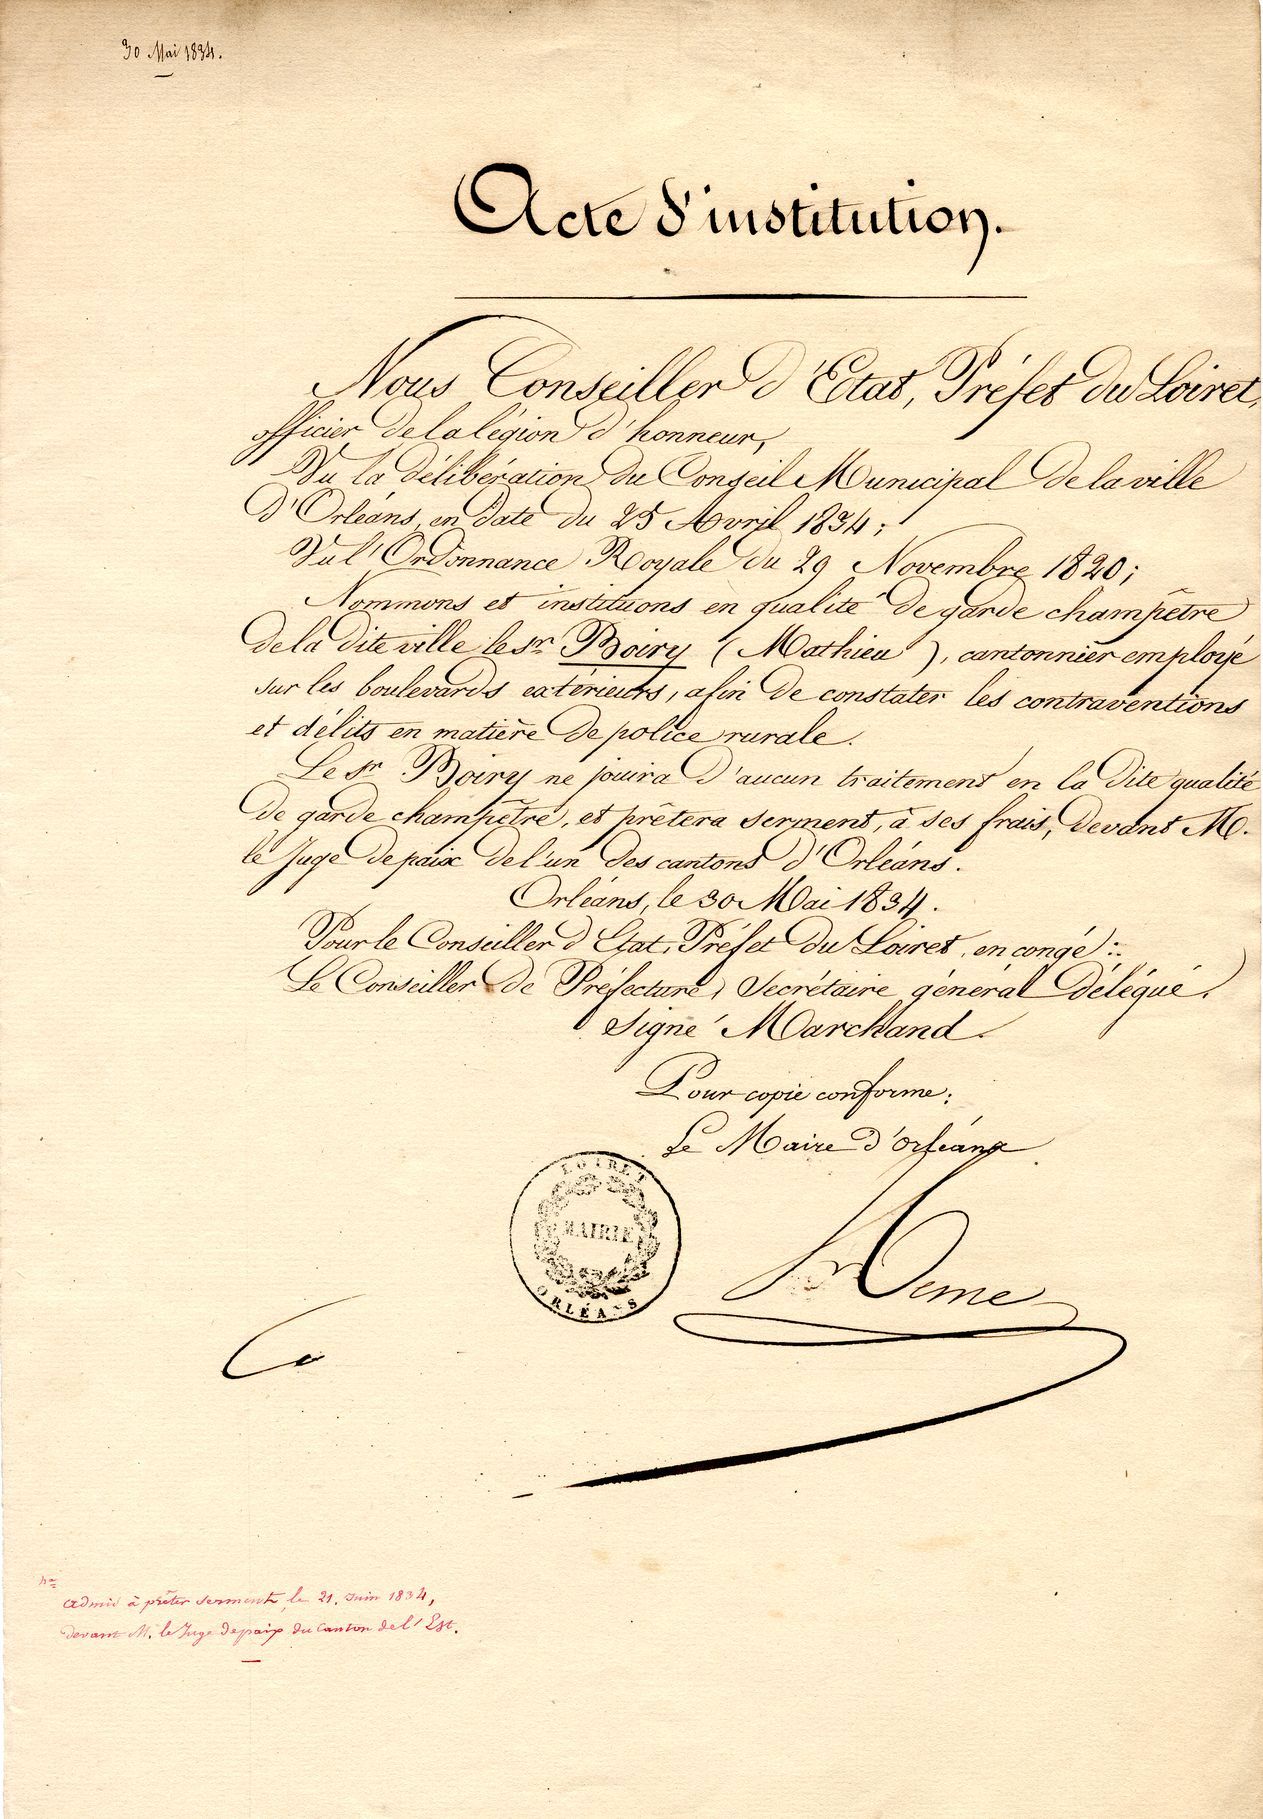 30 Mai 1834.
Acte d'institution.
Nous Conseiller d'Etat, Préfet du Loiret,
officier de la légion d'honneur,
Vu la délibération du Conseil Municipal de la ville
d'Orléans, en date du 25 Avril 1834;
Vu l'Ordonnance Royale du 29 Novembre 1820;
Nommons et instituons en qualité de garde champêtre
de la dite ville le sr Boiry (Mathieu), cantonnier employé
sur les boulevards extérieurs, afin de constater les contraventions
et délits en matière de police rurale.
Le sr Boiry ne jouira d'aucun traitement en la dite qualité
de garde champêtre, et prêtera serment, à ses frais, devant M.
le Juge de paix de l'un des cantons d'Orléans.
Orléans, le 30 Mai 1834.
Pour le Conseiller d'Etat, Préfet du Loiret, en congé:
Le Conseiller de Préfecture, Secrétaire général délégué.
Signé Marchand.
Pour copie conforme:
Le Maire d'Orléans
LOIRET
MAIRIE
ORLÉANS
admis à prêter serment, le 21. Juin 1834,
devant M. le Juge de paix du Canton de l'Est.